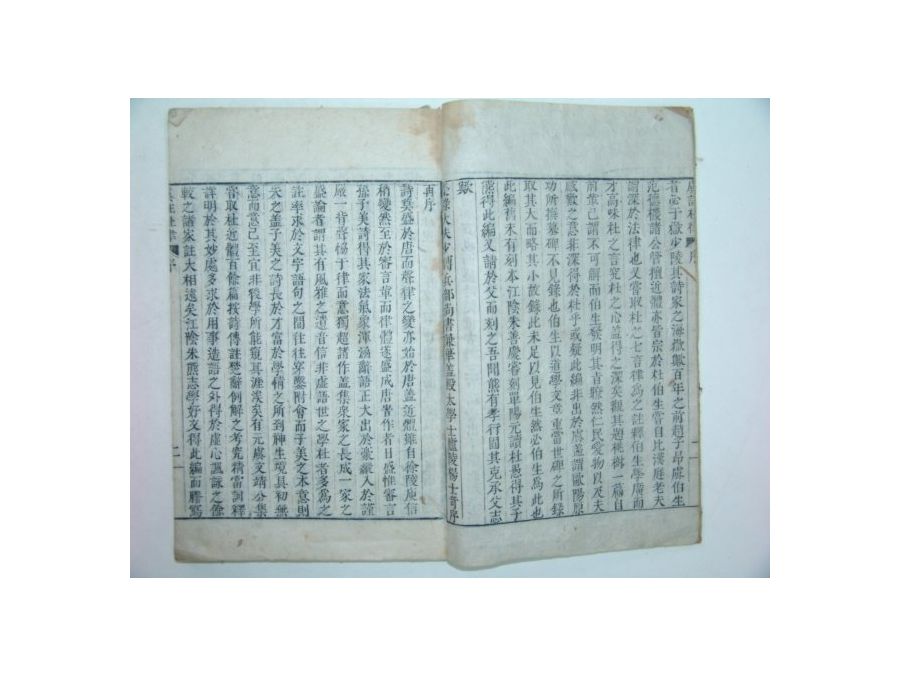 虞註杜律 序
者必于嶽少陵其詩家之海嶽歟百年之前趙子昂虞伯生
范德機諸公皆擅近體亦皆宗於杜伯生嘗自比漢庭老夫
謂深於法律也又嘗取杜之七言律為之註釋伯生學廣而
才高味杜之言究杜之心蓋得之深矣觀其題桃樹一篇自
前輩已謂不可解而伯生發明其旨瞭然仁民愛物以及夫
感歎之意非深得於杜乎或疑此編非出於虞蓋謂歐陽原
功所撰墓碑不見錄也伯生以道學文章重當世碑之所錄
取其大而略其小故錄此未足以見伯生然必伯生為此也
此編舊未有刻本江陰朱善慶嘗刻單陽元讀杜愚得其子
熊得此編又請於父而刻之吾聞熊有孝行圖其克承父志
歟
大夫少 兵部尚書兼華蓋殿大學士廬陵楊士奇序
再序
詩莫盛於唐而聲律之變亦始於唐蓋近體雖自徐陵庾信
稍變然至於審言輩而律體遂盛成唐眥作者日盛惟審言
孫子美詩得其家法氣象渾涵辭語正大出於漲縱入於謹
嚴一眥聲暢于律而意獨超諸作蓋集衆家之長成一家之
盛論者謂其有風雅之遺音信非虛語世之學杜者多為之
註率求於文字語句之間往往穿鑿附會而子美之本意則
失之蓋子美之詩長於才富於學情之所到神生境具初無
意而意已至宜非後學所能窺其涯涘矣有元虞文靖公集
嘗取杜近體百餘篇按詩傳註楚辭例解之考究精當詞釋
詳明於其妙處多求於用事造語之外得於虛心諷詠之餘
較之諸家註大相遠矣江陰朱熊志學好文得此編而謄寫
虞註杜律 序 二